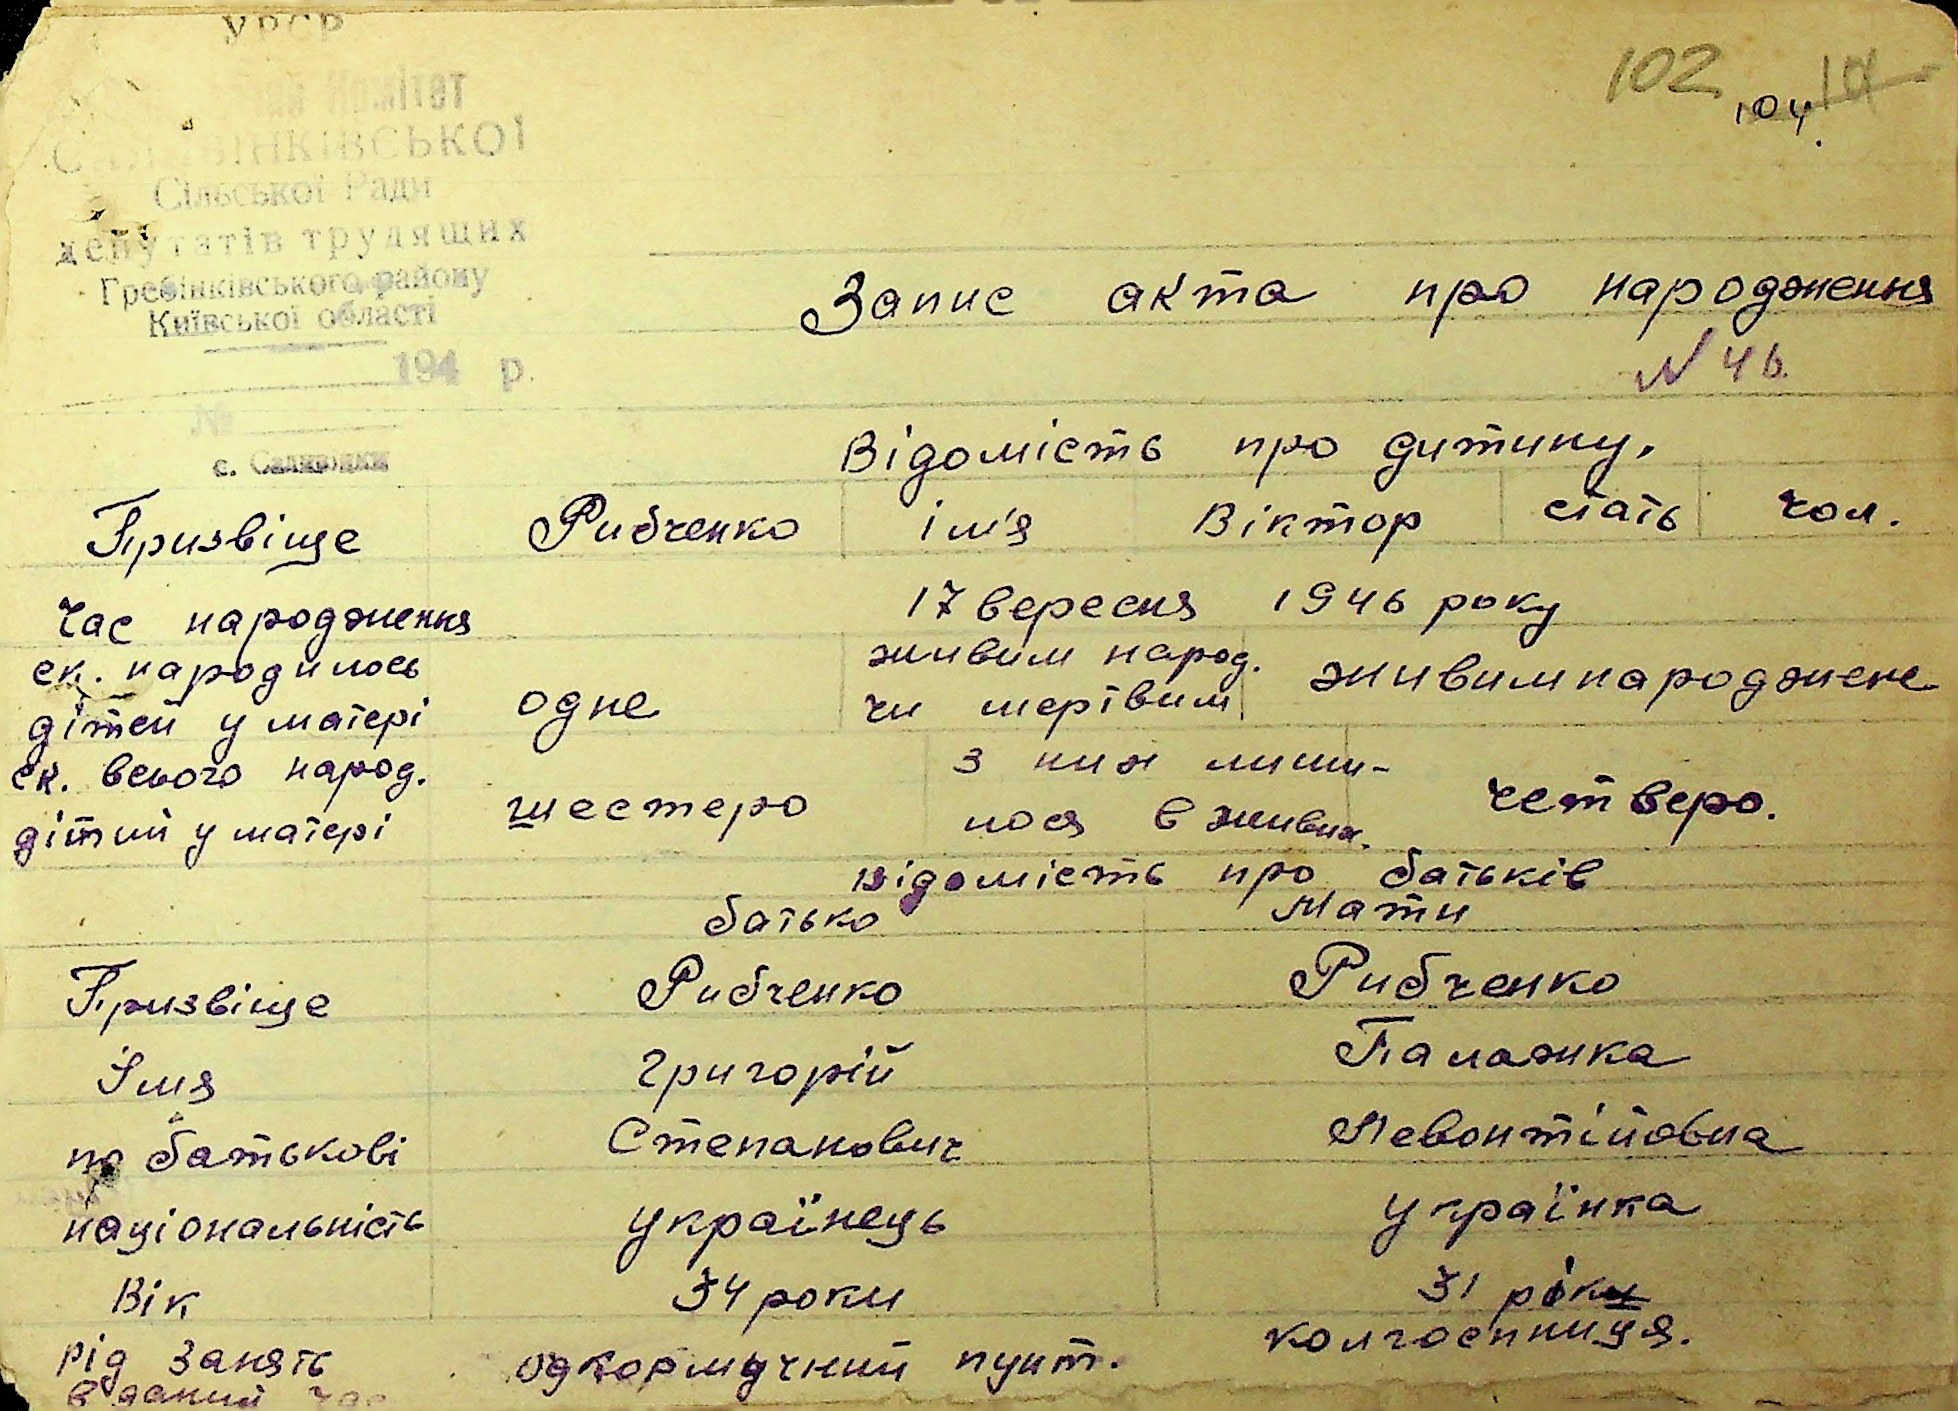 УРСР
Комітет
САЛИВІНКІВСЬКОЇ
Сільської Ради
депутатів трудящих
Гребінківського району
Київської області
194 р.
№
с. Саливонки
102
104
Запис акта про народження
N 46.
Відомість про дитину.
Призвіще Рибченко ім'я Віктор стать чол.
Час народження 17 вересня 1946 року
ск. народилось дітей у матері одне живим народ. чи мертвим живимнароджене
ск. всього народ. дітий у матері шестеро з них лиши-лося в живих. четверо.
відомість про батьків
батько Мати
Призвіще Рибченко Рибченко
Імя Григорій Палажка
по батькові Степанович Левонтійовна
національність українець українка
Вік 34 роки 31 рік
рід занять одкормочний пункт. колгоспниця.
в даний час